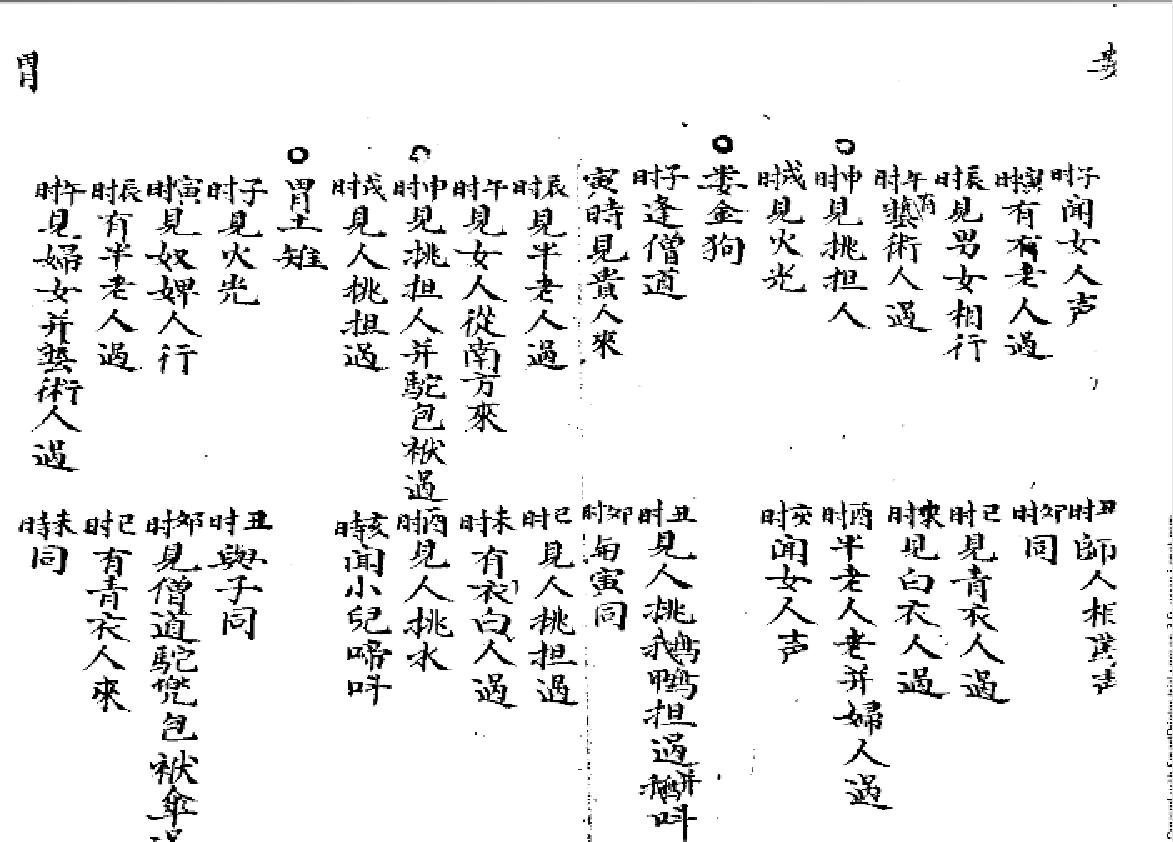 婁
子时闻女人声
丑时師人相罵声
寅时有有老人過
卯时同
辰时見男女相行
巳时見青衣人過
午时有藝術人過
未时見白衣人過
申时見挑担人
酉时半老人老并婦人過
戌时見火光
亥时闻女人声
婁金狗
子时逢僧道
丑时見人挑鵝鴨担過 叫
寅時見貴人來
卯时与寅同
辰时見半老人過
巳时見人挑担過
午时見女人從南方來
未时有衣白人過
申时見挑担人并駝包袱過
酉时見人挑水
戌时見人挑担過
亥時闻小兒啼呌
胃土雉
子时見火光
丑时與子同
寅时見奴婢人行
卯时見僧道駝兜包袱傘過
辰时有半老人過
巳时有青衣人來
午时見婦女并藝術人過
未時同
胃